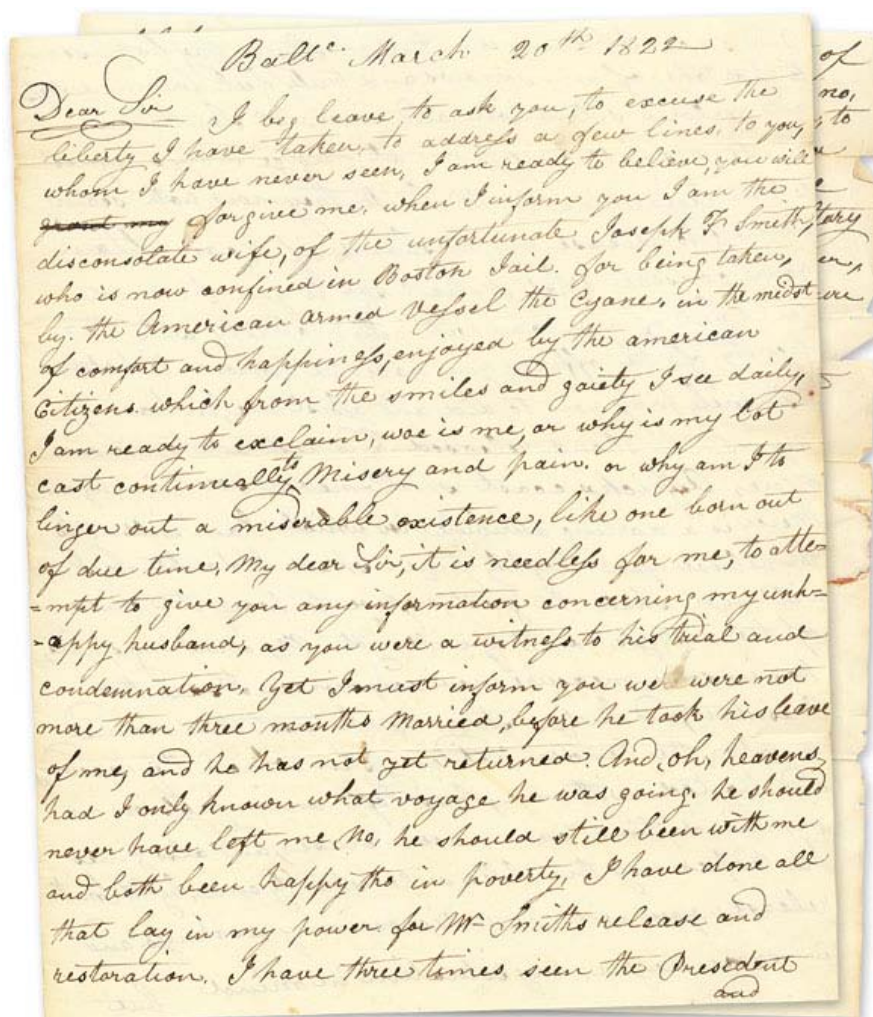 Balte. March 20th 1822
Dear Sir I beg leave, to ask you, to excuse the
liberty I have taken, to address a few lines, to you,
whom I have never seen, I am ready to believe, you will
forgive me, when I inform you I am the
disconsolate wife, of the unfortunate Joseph F Smith,
who is now confined in Boston Jail. for being taken,
by. the American armed Vessel the Cyane, in the midst
of comfort and happiness, enjoyed by the american
Citizens. which from the smiles and gaiety I see daily,
I am ready to exclaim, woe is me, or why is my lot
cast continually to Misery and pain. or why am I to
linger out a miserable existence, like one born out
of due time, My dear Sir, it is needless for me, to atte=
=mpt to give you any information concerning my unh=
=appy husband, as you were a witness to his trial and
condemnation. Yet I must inform you we were not
more than three months Married, before he took his leave
of me, and he has not yet returned. And, oh, heavens,
had I only known what voyage he was going. he should
never have left me, No, he should still been with me
and both been happy tho in poverty, I have done all
that lay in my power for Mr Smiths release and
restoration. I have three times seen the President
and
of
no,
to